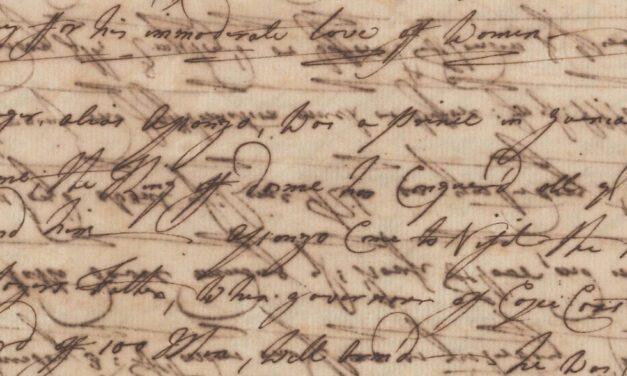 for his immoderate love off Women
alias Apongo, was a Prince in Guinea
the King off Dome has Conquer'd all
him Apongo Came to Visit the
Father, when governour of Cape Coas
of 100 Men, well arm'd he was